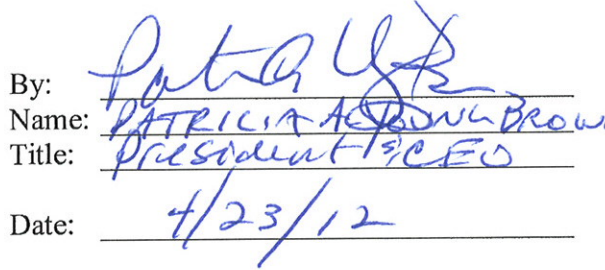 By:
Name: PATRICIA A YOUNG BROWN
Title: President & CEO
Date: 4/23/12